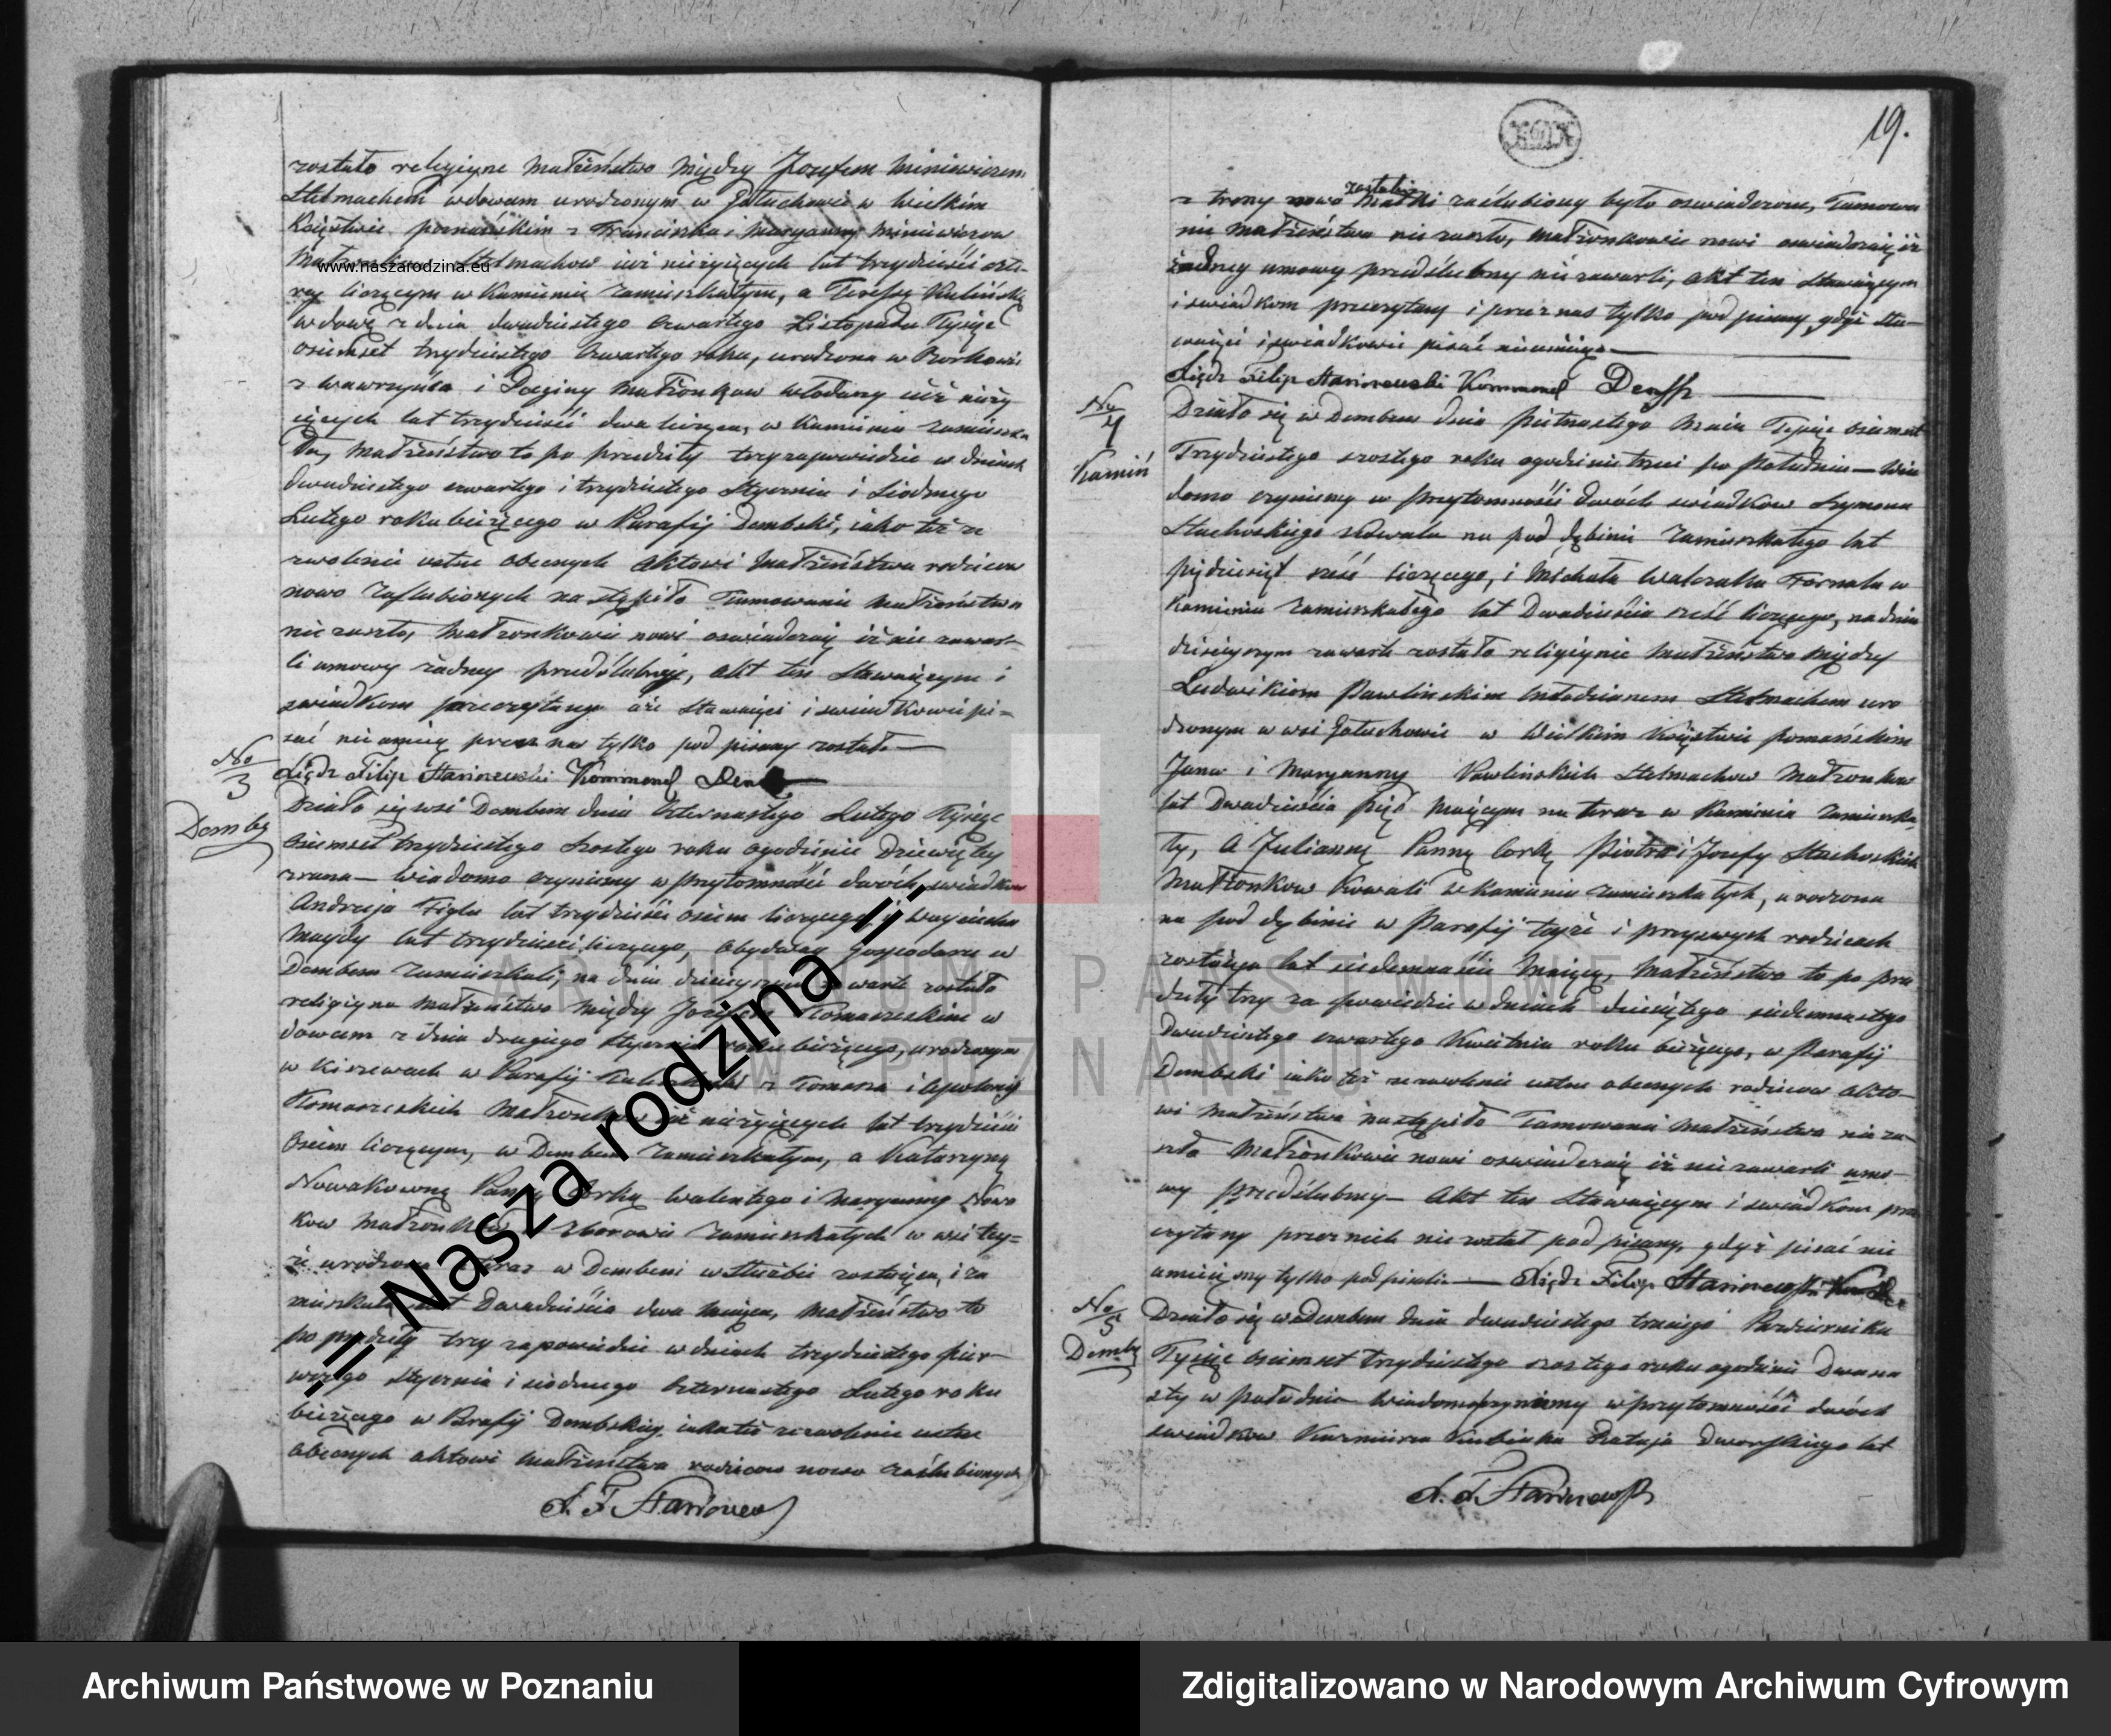 zostało religijne Małżeństwo między Jozefem Miniewiczem
Stelmachem wdowcem urodzonym w Gołuchowie w Wielkim
Księstwie poznańskim z Franciszka i Maryanny Miniewiczow
Małżonkow Stelmachow iuż nieżyjących lat trzydzieści czte-
www.naszarodzina.eu
ry liczącym w Kamieniu zamieszkałym, a Teressą Kulińską
wdową z dnia dwudziestego czwartego Listopada Tysiąc
osiemset trzydziestego czwartego roku, urodzona w
z Wawrzyńca i Małżonkow iuż nieży
iących lat trzydzieści dwa licząca, w Kamieniu zamieszka
łą, Małżeństwo to po przedziły trzy zapowiedzie w dniach
dwudziestego czwartego i trzydziestego Stycznia i Siodmego
Lutego roku bieżącego w Parafij Dembski, iako też ze
zwolenie ustne obecnych Aktowi Małżeństwa rodzicow
nowo Zaslubionych nastąpiło Tamowanie Małżeństwa
nie zaszło, Małżonkowie nowi oswiadczaią iż nie zawar-
li umowy żadney przedślubney, Akt ten Stawaiącym i
swiadkom przeczytany iże Stawaiący i swiadkowie pi-
sać nie umieią przez nas tylko pod pisany został—
Xiądz Filip Kommend
No
3
Demby
Działo się wsi Dembem dnia Czternastego Lutego Tysiąc
Osiemset trzydziestego szostego roku ogodzinie Dziewiątey
zrana— wiadomo czyniemy w przytomności dwóch swiadkow
Andrzeja Figla lat trzydzieści osiem liczącego i Woyciecha
Maydy lat trzydzieści liczącego, obydway Gospodarze w
Dembem zamieszkali; na dniu dzisieyszym zawarte zostało
religijne Małżeństwo między Jozefem Tomaszeskim w
dowcem z dnia drugiego Stycznia roku bieżącego, urodzonym
w Kiszewach w Parafij z Tomasza i Apolonij
Tomaszeskich Małżonkow iuż nieżyiących lat trzydzieści
osiem liczącym, w Dembem zamieszkałym, a Katarzyną
Nowakowną Panną Corką Walentego i Maryanny Nowa
kow Małżonkow zamieszkałych w wsi tey-
że urodzona teraz w Dembem w służbie zostaiąca, i za
mieszkała lat Dwadzieścia dwa maiąca, Małżeństwo to
po przedziły trzy zapowiedzie w dniach trzydziestego pier-
wszego Stycznia i siodmego Czternastego Lutego roku
bieżącego w Prafij Dembskiey, iako też zezwolenie ustne
obecnych aktowi Małżeństwa rodzicow nowo zaślubionych
19.
zostałey
z trony nowo Małżki zaślubiony było oswiadczone, Tamowa
nie Małżeństwa nie zaszło, Małżonkowie nowi oswiadczaią iż
żadney umowy przedślubny nie zawarli, Akt ten Stawaiącym
i swiadkom przeczytany i przez nas tylko pod pisany, gdyż sta-
waiący i swiadkowie pisać nieumieią—
Xiądz Filip Kommend
No
4
Kamiń
Działo się w Dembem dnia Piętnastego Maia Tysiąc osiemset
Trzydziestego szostego roku ogodzinie trzeci po Południu— Wia
domo czyniemy w przytomności dwóch swiadkow Szymona
Stachoskiego Kowala na pod dębinie zamieszkałego lat
pięćdziesiąt sześć liczącego, i Michała Walczaka Fornala w
Kamieniu zamieszkałego lat Dwadzieścia sześć liczącego, na dniu
dzisieyszym zawarte zostało religijnie Małżeństwo między
Ludwikiem Pawlinskim Młodzianem Stelmachem uro
dzonym w wsi Gołuchowie w Wielkim Księstwie poznańskim
Jana i Maryanny Pawlińskich Stelmachow Małżonkow
lat Dwadzieścia pięć maiącym na teraz w Kamieniu zamieszka
ły, A Julianną Panną Corką Piotra i Jozefy Stachoskich
Małżonkow Kowali w Kamieniu zamieszkałych, urodzona
na pod dębinie w Parafij teyże i przyswych rodzicach
zostaiąca lat siedemnaście maiąca, Małżeństwo to po prze
dziły trzy zapowiedzie w dniach dziesiątego siedemnastego
Dwudziestego czwartego Kwietnia roku bieżącego, w Parafij
Dembski iako też zezwolenie ustne obecnych rodzicow akto-
wi Małżeństwa nastąpiło Tamowanie Małżeństwa nie za-
szło Małżonkowie nowi oswiadczaią iż nie zawarli umo-
wy przedślubney— Akt ten Stawaiącym i swiadkom prze
czytany przez nich nie został pod pisany, gdyż pisać nie
umieią my tylko podpisali— Xiądz Filip
No
5
Demby
Działo się w Dembem dnia dwudziestego trzeciego Pazdziernika
Tysiąc osiemset trzydziestego szostego roku ogodzinie Dwuna
sty w południe wiadomo czyniemy w przytomności dwóch
swiadkow Kazmierza Kubiaka Rataja dworskiego lat
ARCHIWUM PAŃSTWOWE
W POZNANIU
:: Nasza rodzina ::
Archiwum Państwowe w Poznaniu
Zdigitalizowano w Narodowym Archiwum Cyfrowym